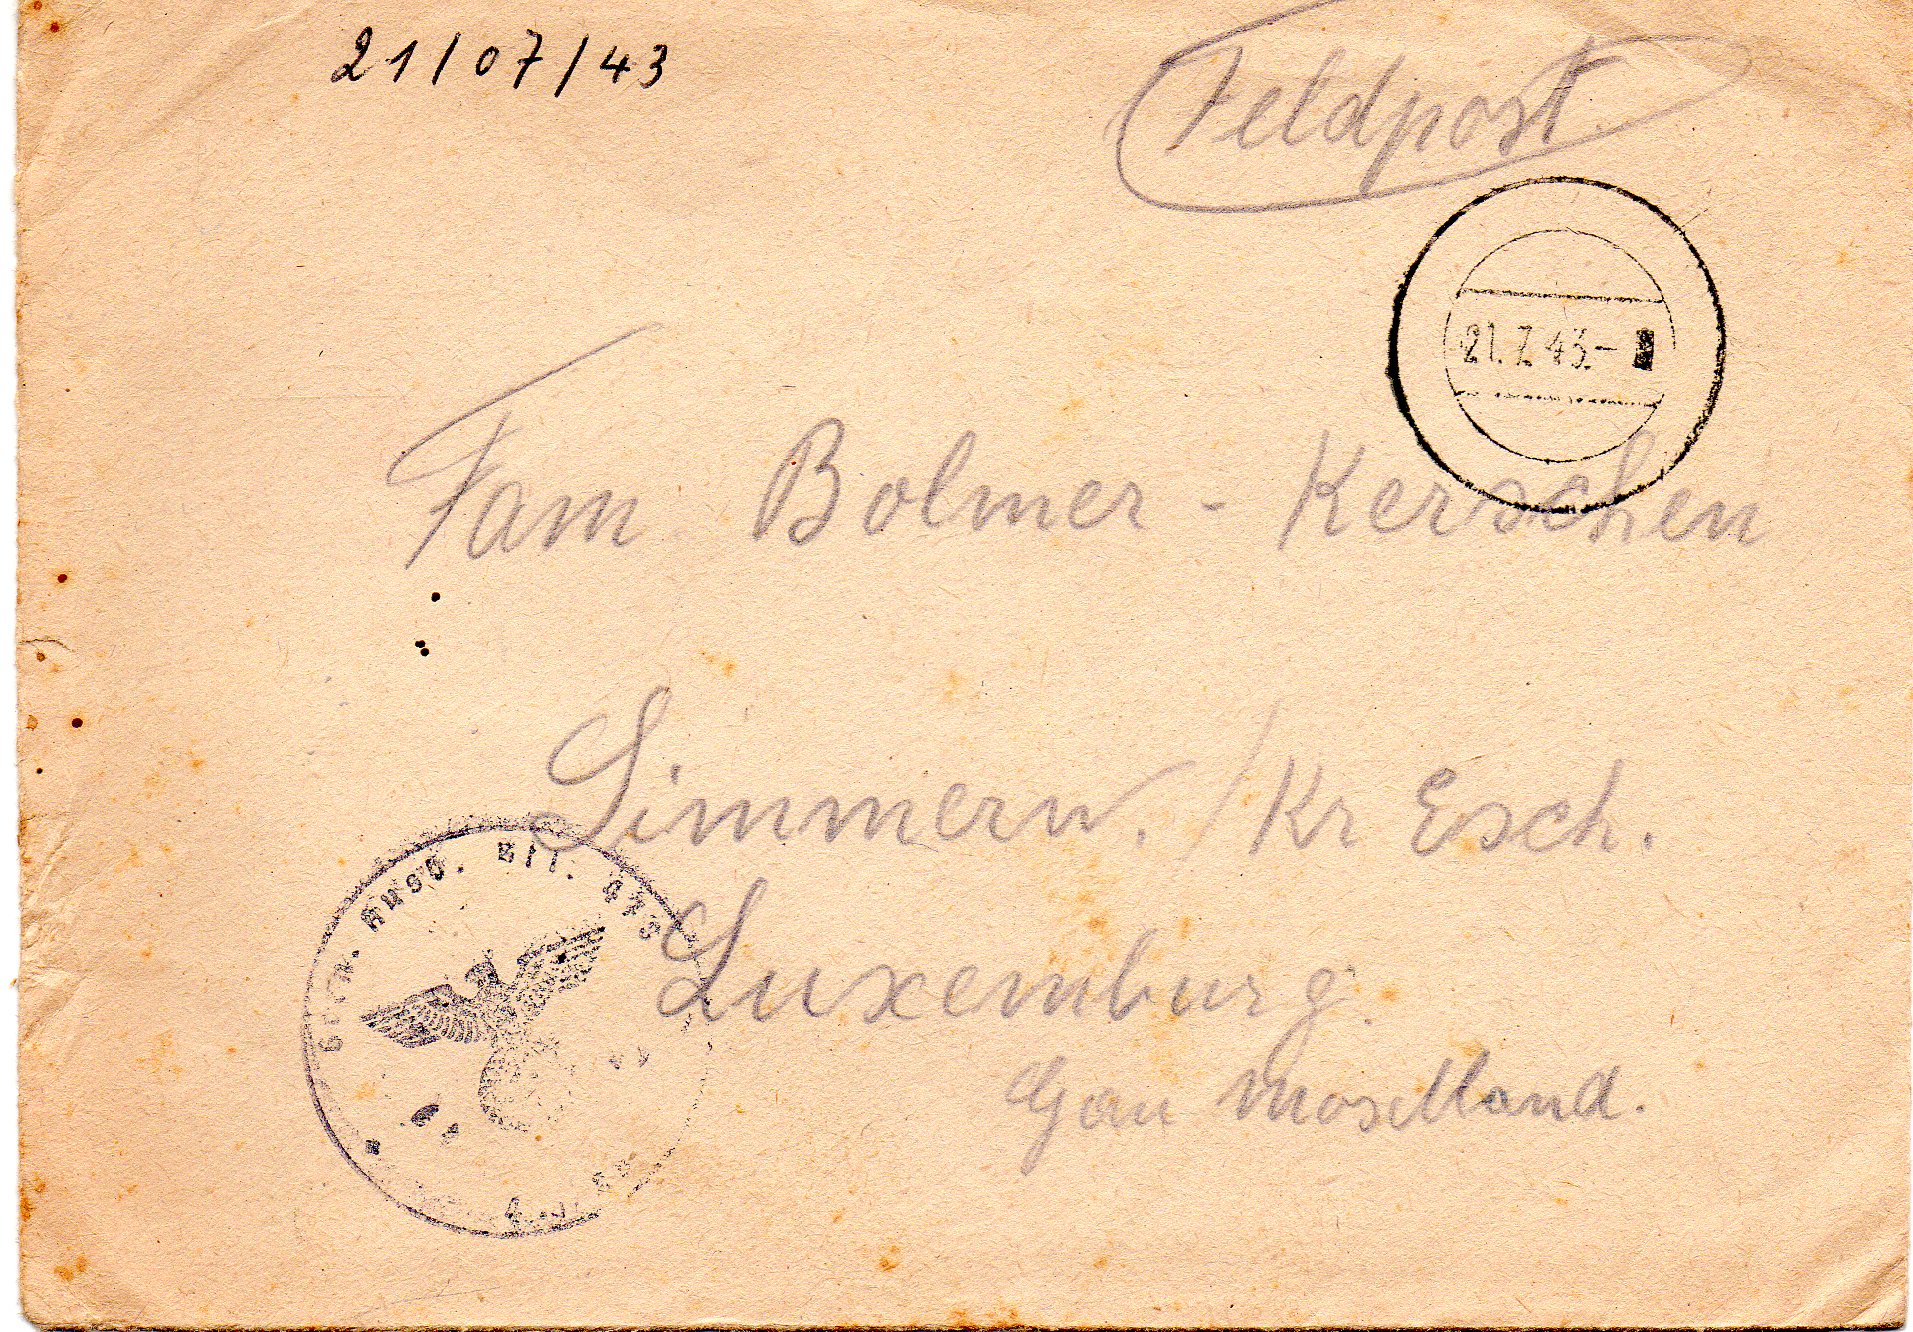 21/07/43
Feldpost.
21.7.43.-
Fam Bolmer - Kerschen
Simmern. / Kr Esch.
Gren. Ausb. Btl.
Luxemburg.
Gau Moselland.